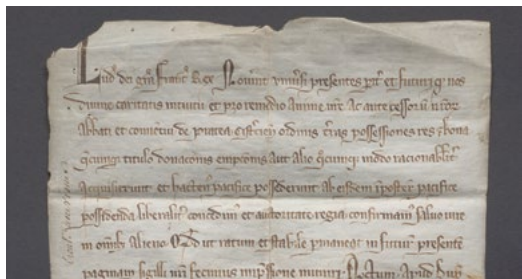 Lud' dei gra Francor' Rex Noverint universi presentes pariter et futuri q' nos
divino caritatis intuitu et pro remedio anime nre Ac antecessorum nror'
Abbati et conventui de prataea Cistercien' ordinis terras possessiones res & bona
q'cumq' titulo donacionis emptionis Aut Alio q'cumq' modo racionabilit'
Acquisierunt et hacten' pacifice possederunt Ab eisdem inposter' pacifice
possidenda liberalit' concedim' et auctoritate regia confirmam' salvo iure
in omnib' Alieno Qd' ut ratum et stabile pmaneat in futur' presente
paginam sigilli nri fecimus impssione muniri Actum Apud